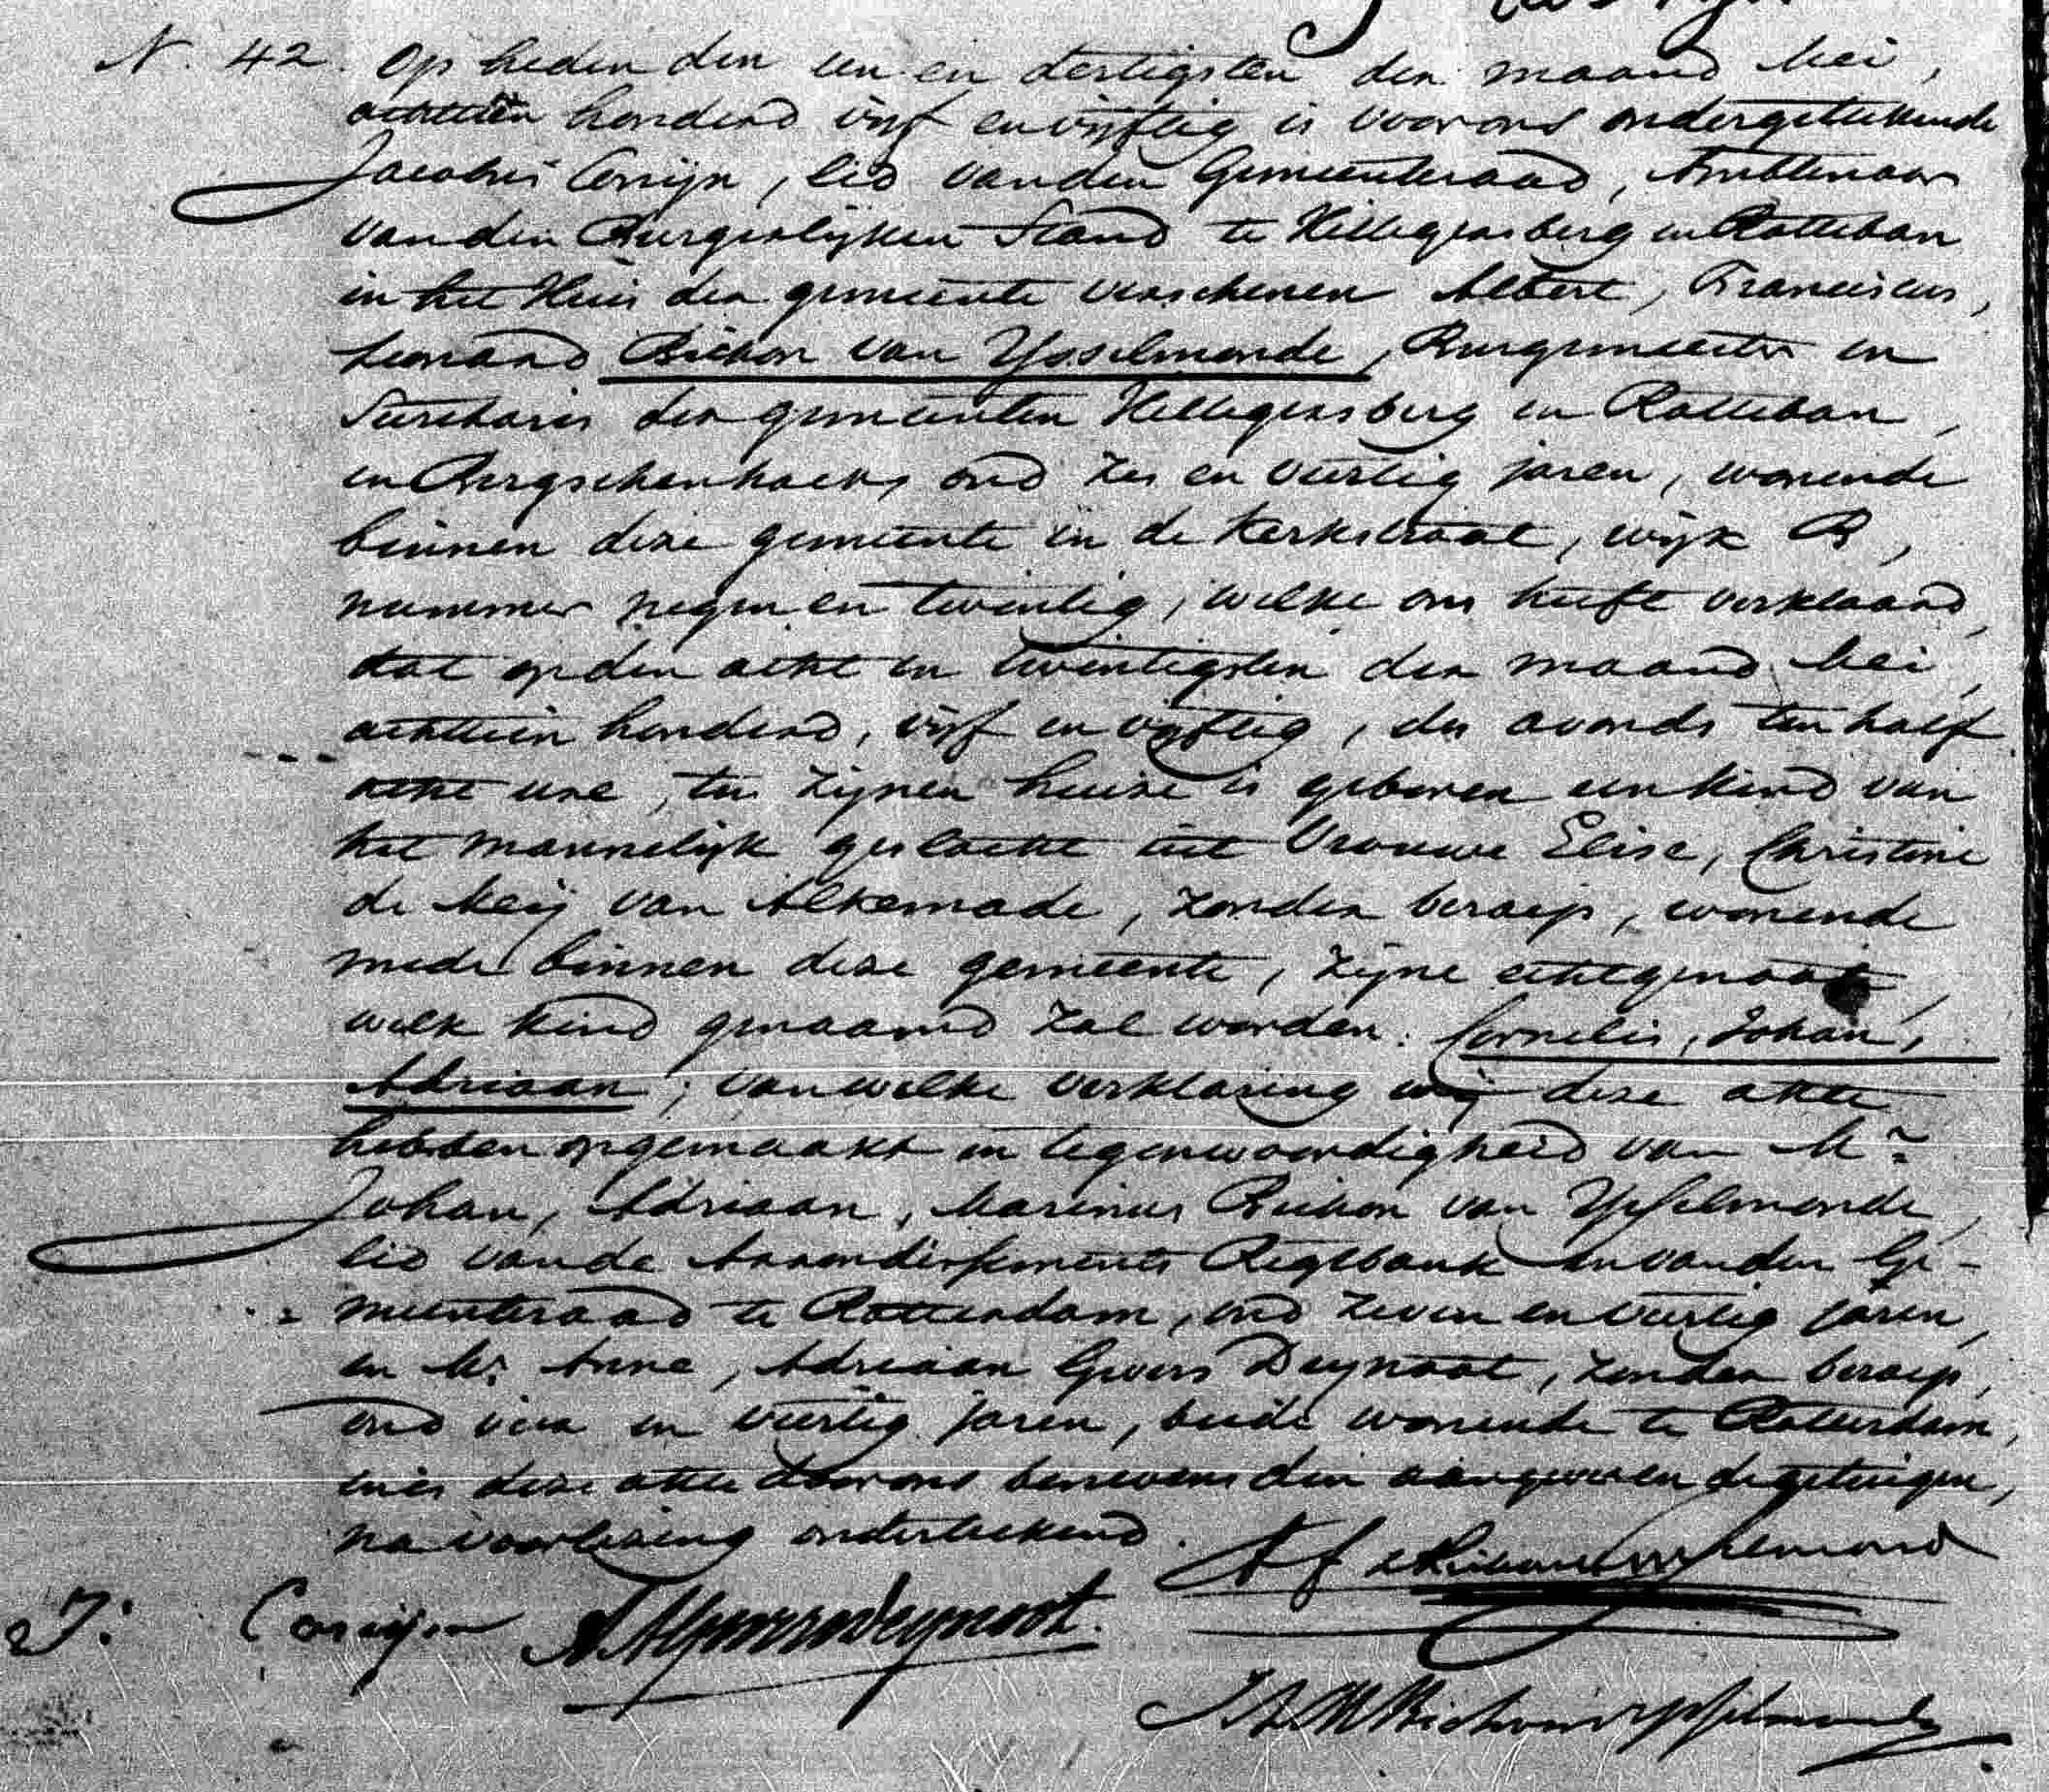 N. 42. Op heden den een en dertigsten der maand Mei,
achttien honderd vijf en vijftig is voor ons ondergeteekende
Jacobus Conijn, lid van den Gemeenteraad, Ambtenaar
van den Burgerlijken Stand te Hillegersberg en Rotteban
in het Huis der gemeente verschenen Albert, Franciscus,
Leonard Bichon van Ysselmonde, Burgemeester en
Secretaris der gemeenten Hillegersberg en Rotteban,
en Bergschenhoek, oud zes en veertig jaren, wonende
binnen deze gemeente in de Kerkstraat, wijk B,
nummer negen en twintig, welke ons heeft verklaard,
dat op den acht en twintigsten der maand Mei,
achttien honderd, vijf en vijftig, des avonds ten half
acht ure, ten zijnen huize is geboren een kind van
het mannelijk geslacht uit Vrouwe Elise, Christine
de Meij van Alkemade, zonder beroep, wonende
mede binnen deze gemeente, zijne echtgenoot,
welk kind genaamd zal worden: Cornelis, Johan,
Adriaan; van welke verklaring wij deze akte
hebben opgemaakt in tegenwoordigheid van Mr.
Johan, Adriaan, Marinus Bichon van Ysselmonde,
lid van de Arrondissements Regtbank en van den Ge-
meenteraad te Rotterdam, oud zeven en veertig jaren,
en Mr. Anne, Adriaan Gevers Deynoot, zonder beroep,
oud vier en veertig jaren, beide wonende te Rotterdam,
en is deze akte door ons benevens den aangever en de getuigen,
na voorlezing onderteekend.
J: Conijn AAGeversDeynoot.
JAMBichonvYsselmonde